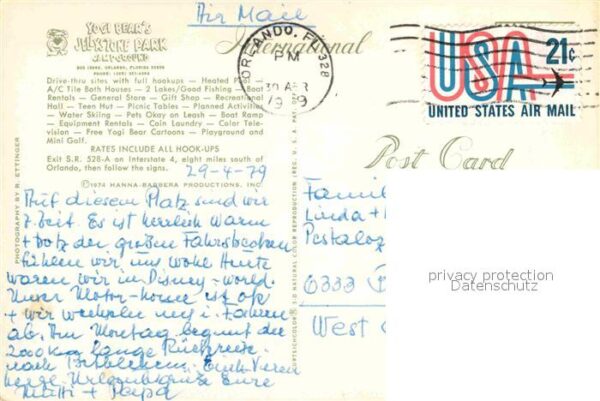 Air Mail
YOGI BEAR'S
JELLYSTONE PARK
CAMP-GROUND
BOX , ORLANDO, FLORIDA
PHONE:
Drive-thru sites with full hookups — Heated Pool —
A/C Tile Bath Houses — 2 Lakes/Good Fishing — Boat
Rentals — General Store — Gift Shop — Recreational
Hall — Teen Hut — Picnic Tables — Planned Activities
— Water Skiing — Pets Okay on Leash — Boat Ramp
— Equipment Rentals — Coin Laundry — Color Tele-
vision — Free Yogi Bear Cartoons — Playground and
Mini Golf.
RATES INCLUDE ALL HOOK-UPS
Exit S.R. 528-A on Interstate 4, eight miles south of
Orlando, then follow the signs.
©1974 HANNA-BARBERA PRODUCTIONS, INC.
PHOTOGRAPHY BY R. ETTINGER
29-4-79
Auf diesem Platz sind wir
z. Zeit. Es ist herrlich warm
+ trotz der großen Fahrstrecken
fühlen wir uns wohl. Heute
waren wir in Disney-world.
Unser Motor-home ist ok
+ wir wechseln uns i. Fahren
ab. Am Montag beginnt die
2000 km lange Rückreise
nach Bethlehem. Euch
herzl. Urlaubsgrüße Eure
Mutti + Papa
International
ORLANDO, FL 328
PM
30 APR
1979
USA 21c
UNITED STATES AIR MAIL
Post Card
NATURAL COLOR REPRODUCTION (REG. U. S. PAT.
Familie
Linda +
Pestaloz
6333
West
privacy protection
Datenschutz